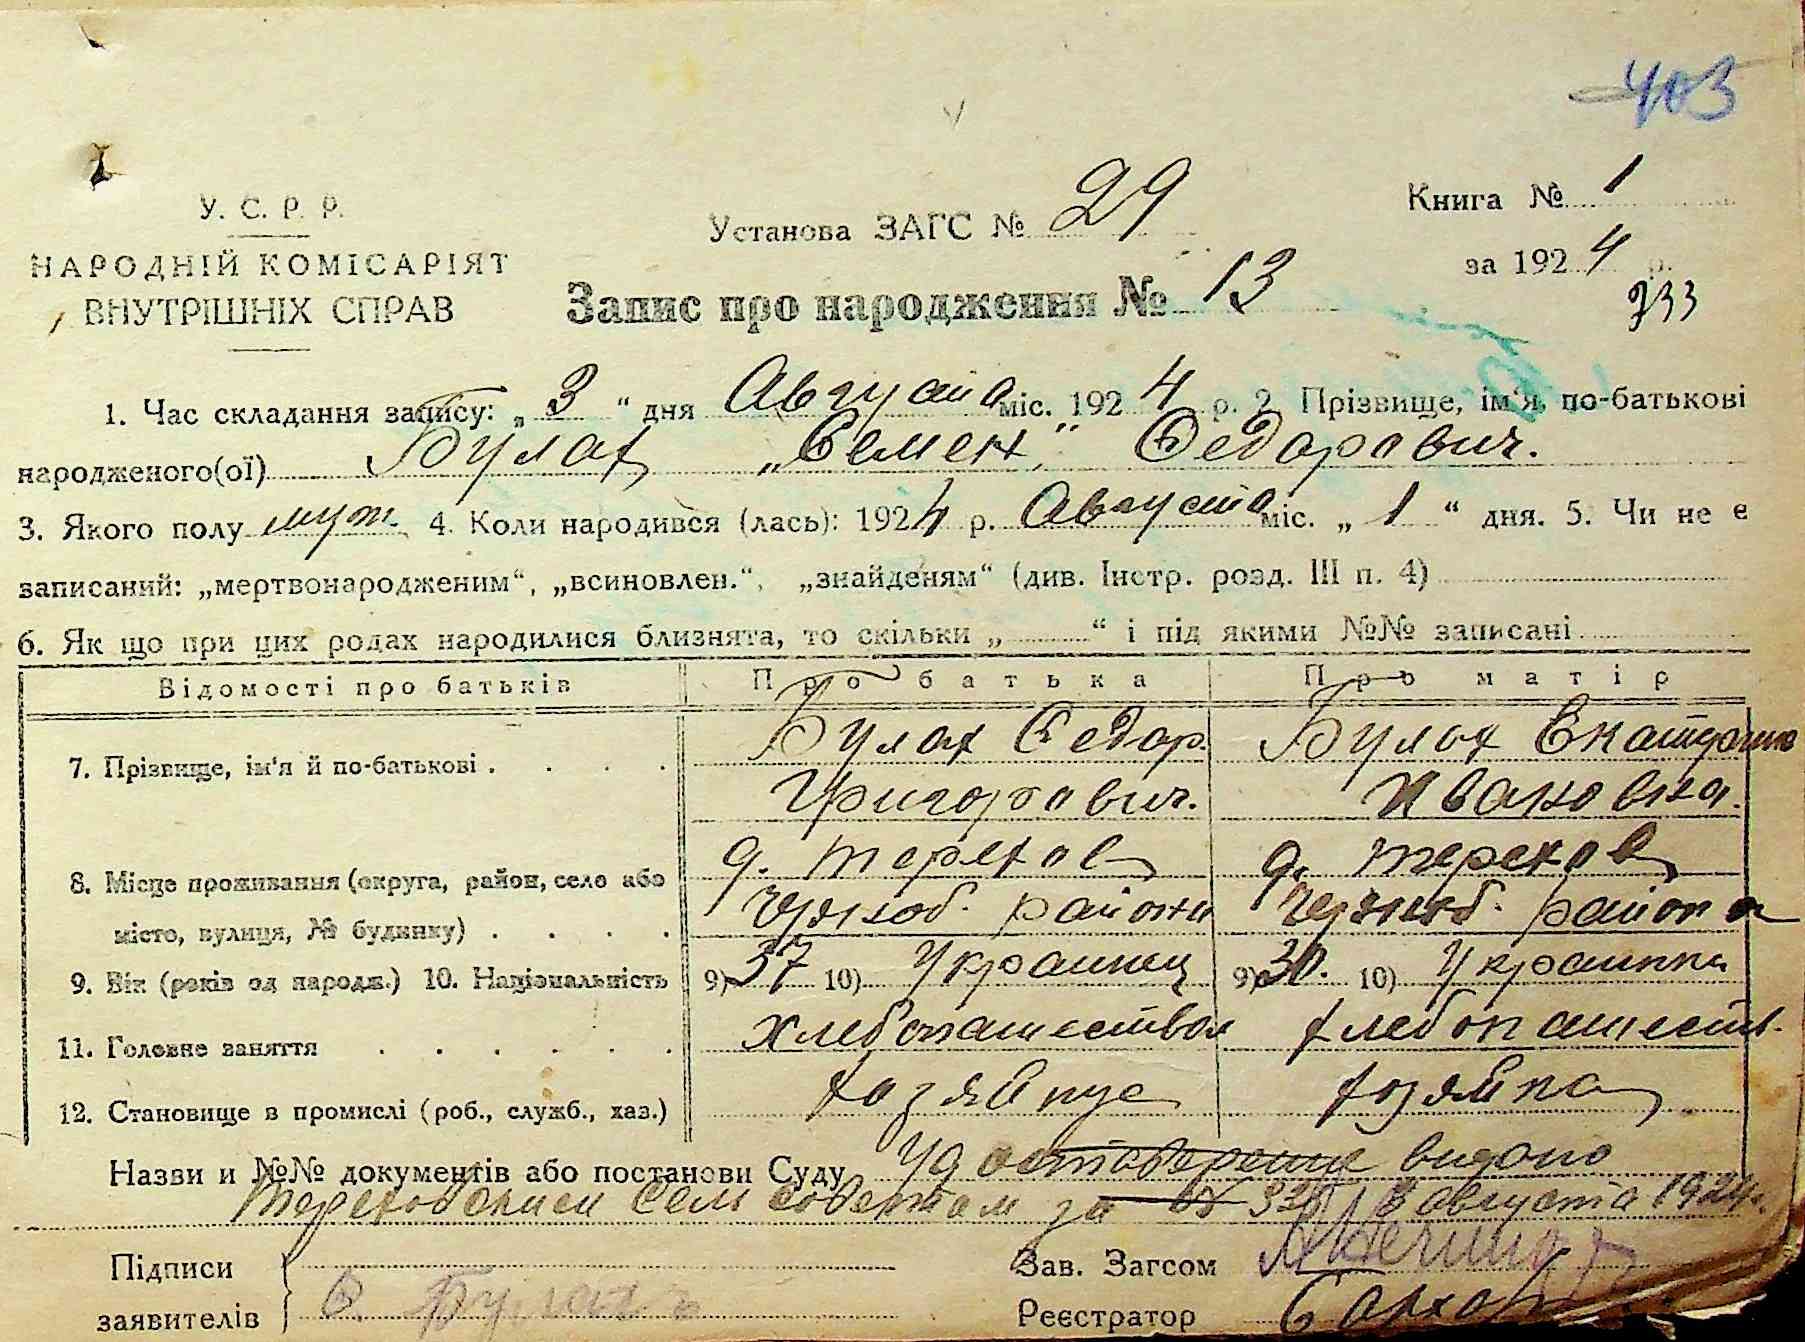 403
У. С. Р. Р.
НАРОДНІЙ КОМІСАРІЯТ
ВНУТРІШНІХ СПРАВ
Установа ЗАГС № 29
Книга № 1
за 1924 р.
Запис про народження № 13
733
1. Час складання запису: „ 3 “ дня Августа міс. 1924 р. 2. Прізвище, ім'я, по-батькові
народженого(ої) Булах „Семен“ Федорович.
3. Якого полу муж. 4. Коли народився (лась): 1924 р. Августа міс. „ 1 “ дня. 5. Чи не є
записаний: „мертвонародженим“, „всиновлен.“, „знайденям“ (див. Інстр. розд. III п. 4)
6. Як що при цих родах народилися близнята, то скільки „ “ і під якими №№ записані
Відомості про батьків Про батька Про матір
7. Прізвище, ім'я й по-батькові . . . . Булах Федор. Булах Екатерина
Григорович. Ивановна.
8. Місце проживання (округа, район, село або д. Терехов д. Терехов
місто, вулиця, № будинку) . . . . района района
9. Вік (років од народж.) 10. Національність 9) 37 10) Украинец 9) 30. 10) Украинка
11. Головне заняття . . . . . . Хлебопашество хлебопашеств.
12. Становище в промислі (роб., служб., хаз.) хозяйка
Назви и №№ документів або постанови Суду видано
Тереховским Сельсоветом за № 3 августа 1924.
Підписи
заявителів Ф. Булах
Зав. Загсом
Реєстратор